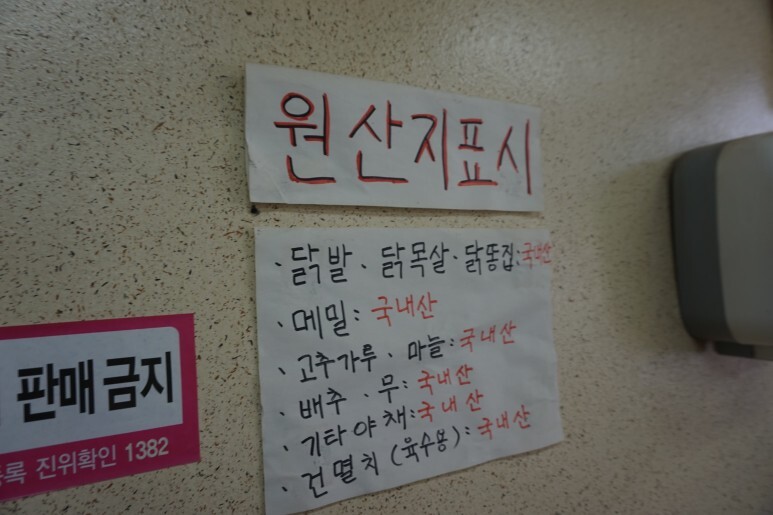 원산지표시
· 닭발 · 닭목살 · 닭똥집: 국내산
· 메밀: 국내산
· 고추가루 · 마늘: 국내산
· 배추 · 무: 국내산
· 기타야채: 국내산
· 건멸치 (육수용): 국내산
판매 금지
진위확인 1382